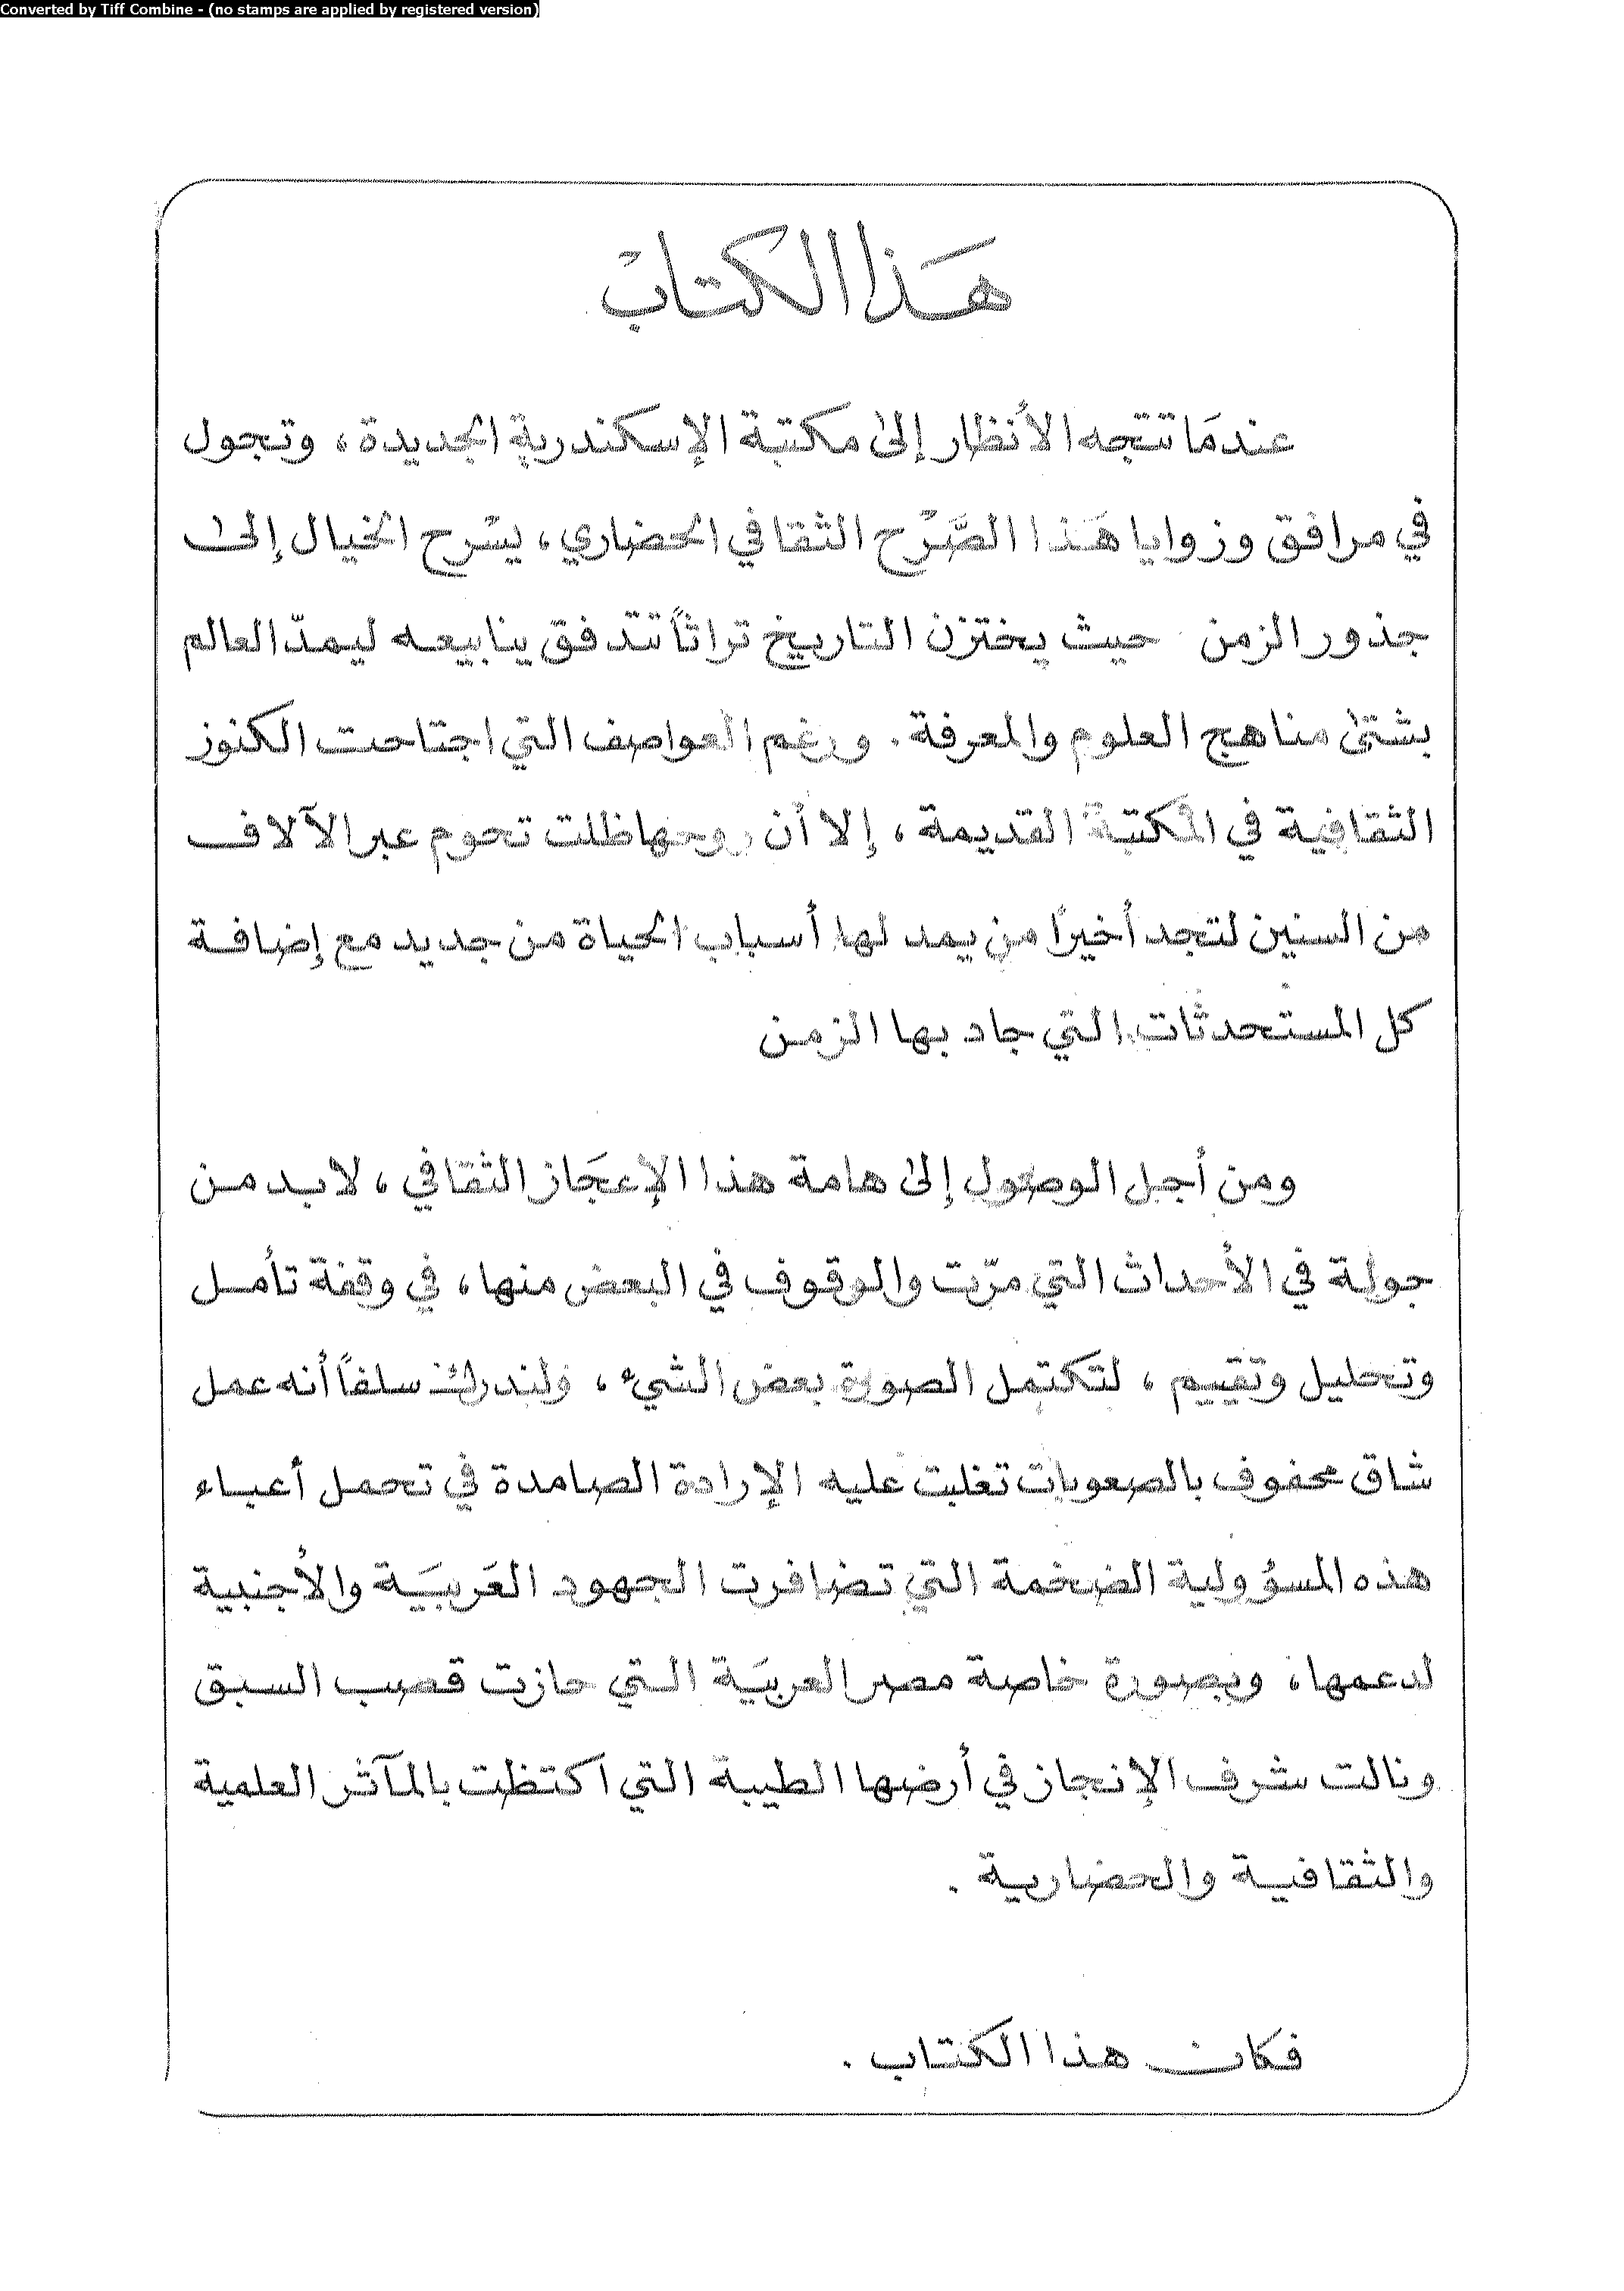 Converted by Tiff Combine - (no stamps are applied by registered version)
هَذا الكتابْ
عندمَا تتجه الأنظار إلىٰ مكتبة الإسكندرية الجديدة، وتجول
في مرافق وزوايا هَذا الصَّرْح الثقافي الحضاري، يسْرح الخيال إلىٰ
جذور الزمن حيث يختزن التاريخ تراثاً تتدفق ينابيعه ليمدّ العالم
بشتىٰ مناهج العلوم والمعرفة. ورغم العواصف التي اجتاحت الكنوز
الثقافية في المكتبة القديمة، إلا أن روحها ظلت تحوم عبر الآلاف
من السنين لتجد أخيرًا من يمد لها أسباب الحياة من جديد مع إضافة
كل المستحدثات التي جاد بها الزمن
ومن أجل الوصول إلىٰ هامة هذا الإعجَاز الثقافي، لابد من
جولة في الأحداث التي مرّت والوقوف في البعض منها، في وقفة تأمل
وتحليل وتقييم، لتكتمل الصورة بعض الشيء، ولندرك سلفاً أنه عمل
شاق محفوف بالصعوبات تغلبت عليه الإرادة الصامدة في تحمل أعباء
هذه المسؤولية الضخمة التي تضافرت الجهود العَربيَة والأجنبية
لدعمها، وبصورة خاصة مصر العربيَة التي حازت قصب السبق
ونالت شرف الإنجاز في أرضها الطيبة التي اكتظت بالمآثر العلمية
والثقافية والحضارية .
فكان هذا الكتاب .